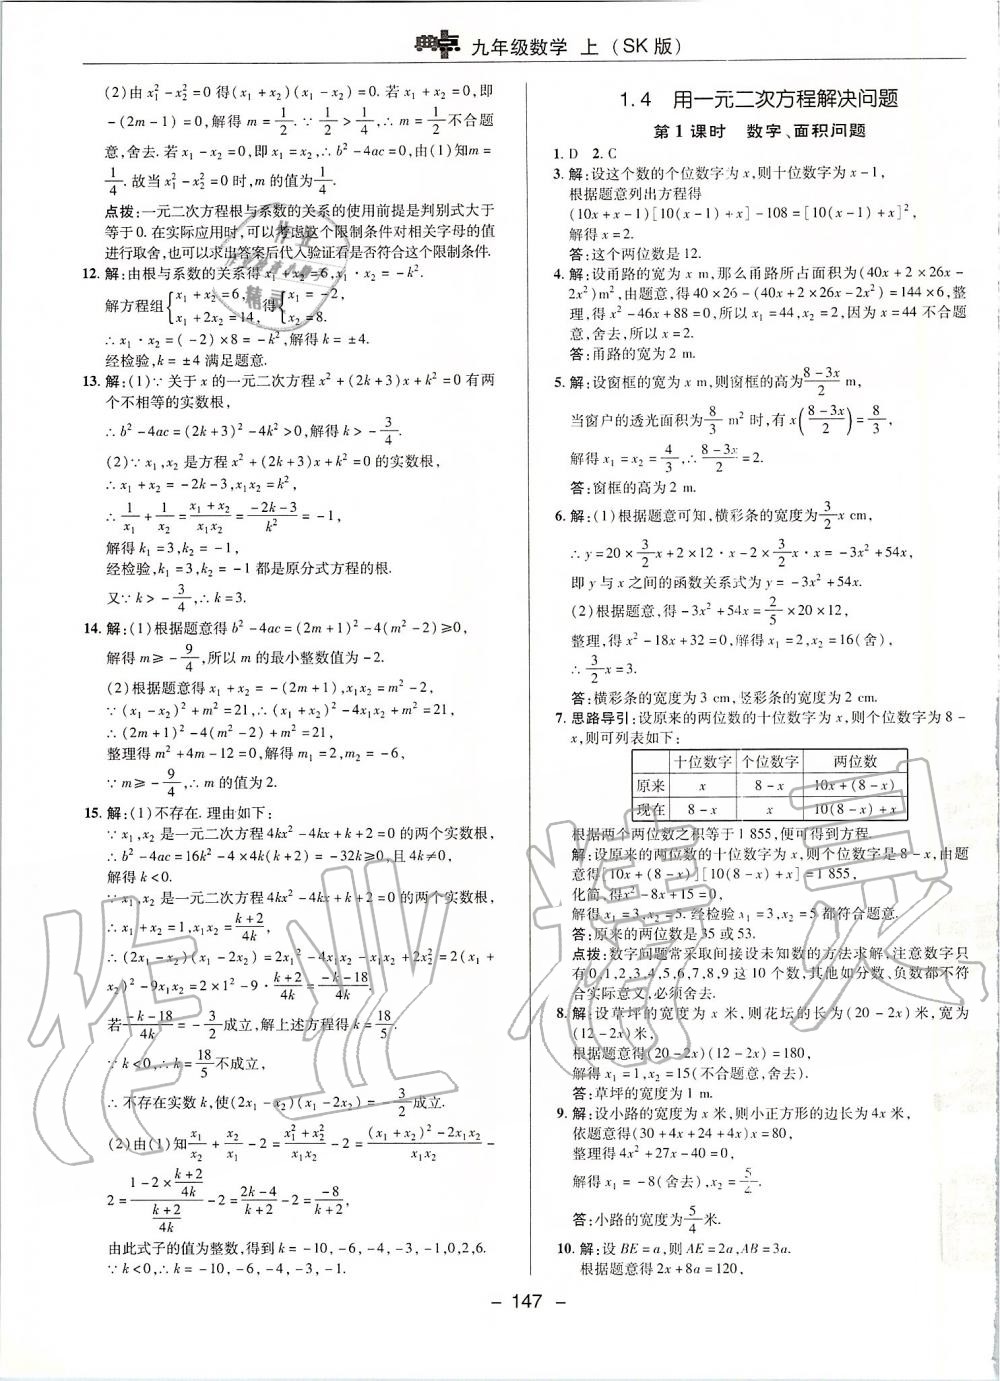 典点 九年级数学 上(SK版)
(2)由x₁²-x₂²=0得(x₁+x₂)(x₁-x₂)=0.若x₁+x₂=0,即
-(2m-1)=0,解得m=1/2.∵1/2>1/4,∴m=1/2不合题
意,舍去.若x₁-x₂=0,即x₁=x₂,∴b²-4ac=0,由(1)知m=
1/4.故当x₁²-x₂²=0时,m的值为1/4.
点拨:一元二次方程根与系数的关系的使用前提是判别式大于
等于0.在实际应用时,可以考虑这个限制条件对相关字母的值
进行取舍,也可以求出答案后代入验证看是否符合这个限制条件.
12. 解:由根与系数的关系得x₁+x₂=6,x₁·x₂=-k².
解方程组{x₁+x₂=6,x₁+2x₂=14,得{x₁=-2,x₂=8.
∴x₁·x₂=(-2)×8=-k²,解得k=±4.
经检验,k=±4满足题意.
13. 解:(1)∵关于x的一元二次方程x²+(2k+3)x+k²=0有两
个不相等的实数根,
∴b²-4ac=(2k+3)²-4k²>0,解得k>-3/4.
(2)∵x₁,x₂是方程x²+(2k+3)x+k²=0的实数根,
∴x₁+x₂=-2k-3,x₁x₂=k²,
∴1/x₁+1/x₂=(x₁+x₂)/(x₁x₂)=(-2k-3)/k²=-1,
解得k₁=3,k₂=-1,
经检验,k₁=3,k₂=-1都是原分式方程的根.
又∵k>-3/4,∴k=3.
14. 解:(1)根据题意得b²-4ac=(2m+1)²-4(m²-2)≥0,
解得m≥-9/4,所以m的最小整数值为-2.
(2)根据题意得x₁+x₂=-(2m+1),x₁x₂=m²-2,
∵(x₁-x₂)²+m²=21,∴(x₁+x₂)²-4x₁x₂+m²=21,
∴(2m+1)²-4(m²-2)+m²=21,
整理得m²+4m-12=0,解得m₁=2,m₂=-6,
∵m≥-9/4,∴m的值为2.
15. 解:(1)不存在.理由如下:
∵x₁,x₂是一元二次方程4kx²-4kx+k+2=0的两个实数根,
∴b²-4ac=16k²-4×4k(k+2)=-32k≥0,且4k≠0,
解得k<0.
∵x₁,x₂是一元二次方程4kx²-4kx+k+2=0的两个实数根,
∴x₁+x₂=1,x₁x₂=(k+2)/4k,
∴(2x₁-x₂)(x₁-2x₂)=2x₁²-4x₁x₂-x₁x₂+2x₂²=2(x₁+
x₂)²-9x₁x₂=2×1²-9·(k+2)/4k=(-k-18)/4k,
若(-k-18)/4k=-3/2成立,解上述方程得k=18/5,
∵k<0,∴k=18/5不成立,
∴不存在实数k,使(2x₁-x₂)(x₁-2x₂)=-3/2成立.
(2)由(1)知x₁/x₂+x₂/x₁-2=(x₁²+x₂²)/(x₁x₂)-2=((x₁+x₂)²-2x₁x₂)/(x₁x₂)-
2=(1-2×(k+2)/4k)/((k+2)/4k)-2=(2k-4)/(k+2)-2=-8/(k+2),
由此式子的值为整数,得到k=-10,-6,-4,-3,-1,0,2,6.
∵k<0,∴k=-10,-6,-4,-3,-1.
1.4 用一元二次方程解决问题
第1课时 数字、面积问题
1. D 2. C
3. 解:设这个数的个位数字为x,则十位数字为x-1,
根据题意列出方程得
(10x+x-1)[10(x-1)+x]-108=[10(x-1)+x]²,
解得x=2.
答:这个两位数是12.
4. 解:设甬路的宽为x m,那么甬路所占面积为(40x+2×26x-
2x²)m²,由题意,得40×26-(40x+2×26x-2x²)=144×6,整
理,得x²-46x+88=0,所以x₁=44,x₂=2,因为x=44不合题
意,舍去,所以x=2.
答:甬路的宽为2 m.
5. 解:设窗框的宽为x m,则窗框的高为(8-3x)/2 m,
当窗户的透光面积为8/3 m²时,有x((8-3x)/2)=8/3,
解得x₁=x₂=4/3,∴(8-3x)/2=2.
答:窗框的高为2 m.
6. 解:(1)根据题意可知,横彩条的宽度为3/2x cm,
∴y=20×3/2x+2×12·x-2×3/2x·x=-3x²+54x,
即y与x之间的函数关系式为y=-3x²+54x.
(2)根据题意,得-3x²+54x=2/5×20×12,
整理,得x²-18x+32=0,解得x₁=2,x₂=16(舍),
∴3/2x=3.
答:横彩条的宽度为3 cm,竖彩条的宽度为2 cm.
7. 思路导引:设原来的两位数的十位数字为x,则个位数字为8-
x,则可列表如下:
十位数字 个位数字 两位数
原来 x 8-x 10x+(8-x)
现在 8-x x 10(8-x)+x
根据两个两位数之积等于1 855,便可得到方程.
解:设原来的两位数的十位数字为x,则个位数字是8-x,由题
意得[10x+(8-x)][10(8-x)+x]=1 855,
化简,得x²-8x+15=0,
解得x₁=3,x₂=5.经检验x₁=3,x₂=5都符合题意.
答:原来的两位数是35或53.
点拨:数字问题常采取间接设未知数的方法求解,注意数字只
有0,1,2,3,4,5,6,7,8,9这10个数,其他如分数、负数都不符
合实际意义,必须舍去.
8. 解:设草坪的宽度为x米,则花坛的长为(20-2x)米,宽为
(12-2x)米,
根据题意得(20-2x)(12-2x)=180,
解得x₁=1,x₂=15(不合题意,舍去).
答:草坪的宽度为1米.
9. 解:设小路的宽度为x米,则小正方形的边长为4x米,
依题意得(30+4x+24+4x)x=80,
整理得4x²+27x-40=0,
解得x₁=-8(舍去),x₂=5/4.
答:小路的宽度为5/4米.
10. 解:设BE=a,则AE=2a,AB=3a.
根据题意得2x+8a=120,
- 147 -
作业精灵